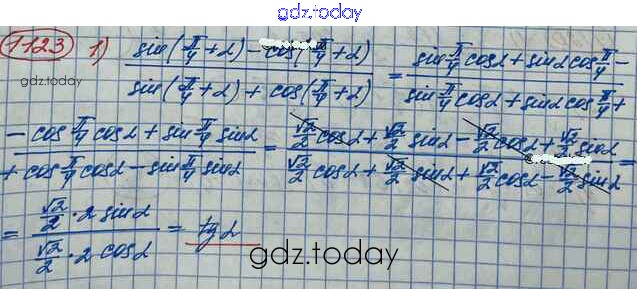 gdz.today
1123 1) sin(π/4+α)-cos(π/4+α) / sin(π/4+α)+cos(π/4+α) = sin π/4 cosα+sinα cos π/4 - / sin π/4 cosα+sinα cos π/4 +
gdz.today
-cos π/4 cosα+sin π/4 sinα / +cos π/4 cosα-sin π/4 sinα = √2/2 cosα+√2/2 sinα-√2/2 cosα+√2/2 sinα / √2/2 cosα+√2/2 sinα+√2/2 cosα-√2/2 sinα =
= √2/2·2 sinα / √2/2·2 cosα = tgα
gdz.today